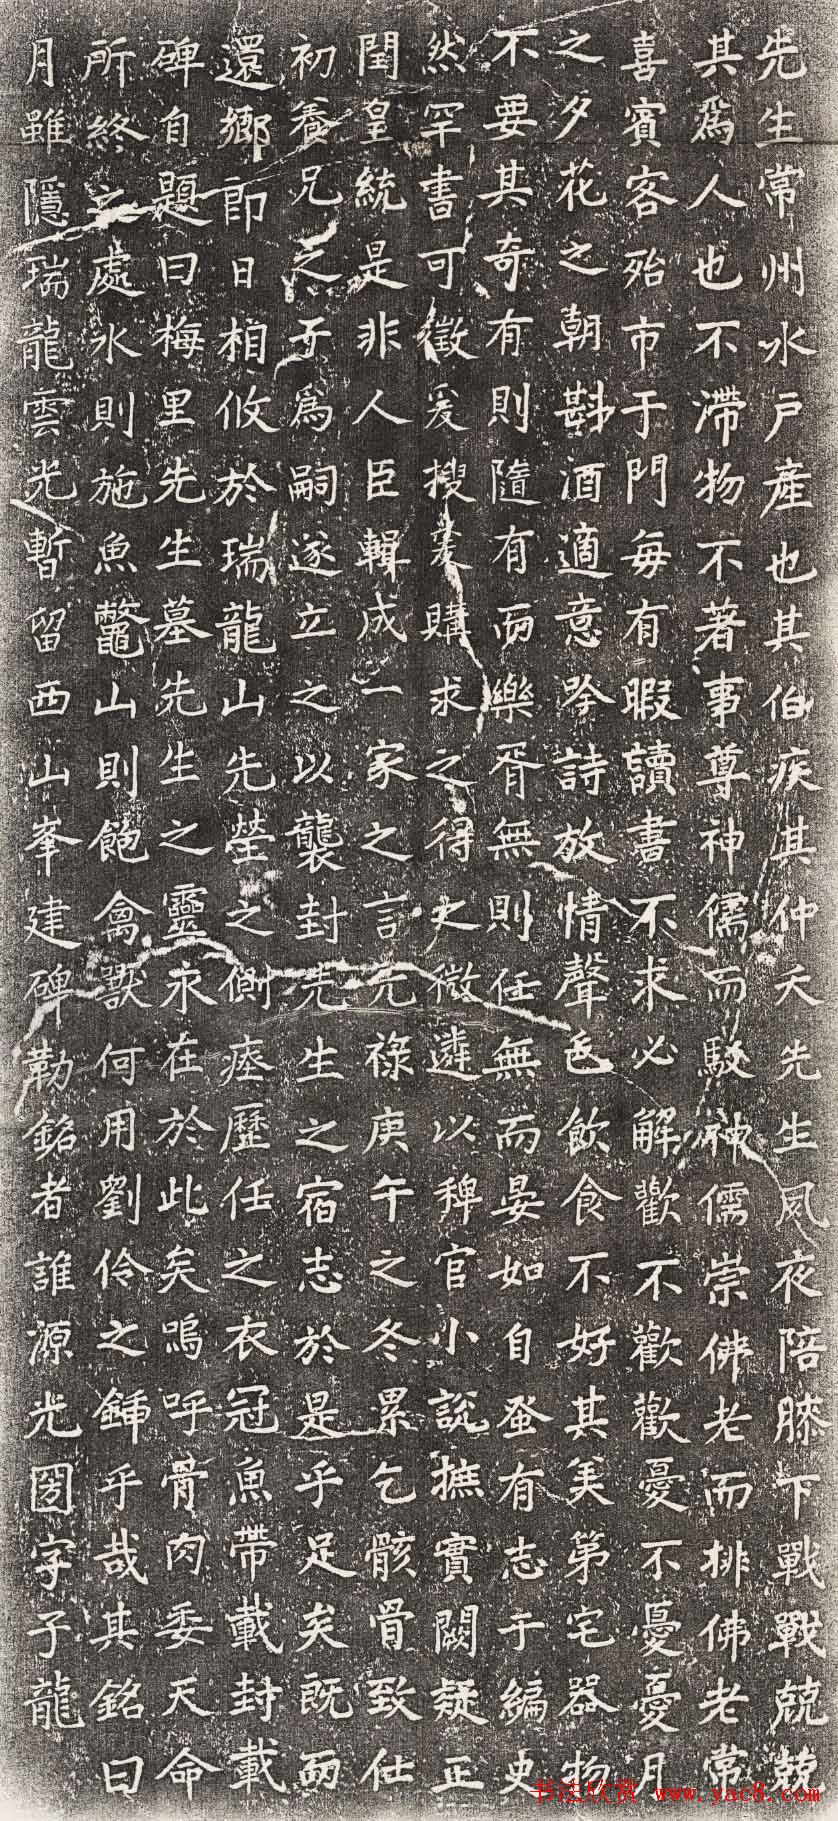 先生常州水戸產也其伯疾其仲夭先生夙夜陪膝下戰戰兢兢
其爲人也不滯物不著事尊神儒而駁神儒崇佛老而排佛老常
喜賓客殆市于門每有暇讀書不求必解歡不歡歡憂不憂憂月
之夕花之朝斟酒適意吟詩放情聲色飲食不好其美第宅器物
不要其奇有則隨有而樂胥無則任無而晏如自蚤有志于編史
然罕書可徵爰搜爰購求之得之微遴以稗官小說摭實闕疑正
閏皇統是非人臣輯成一家之言元祿庚午之冬累乞骸骨致仕
初養兄之子爲嗣遂立之以襲封先生之宿志於是乎足矣既而
還鄉即日相攸於瑞龍山先塋之側瘞歷任之衣冠魚帶載封載
碑自題曰梅里先生墓先生之靈永在於此矣嗚呼骨肉委天命
所終之處水則施魚鼈山則飽禽獸何用劉伶之鍤乎哉其銘曰
月雖隱瑞龍雲光暫留西山峯建碑勒銘者誰源光圀字子龍
书法欣赏 www.yac8.com